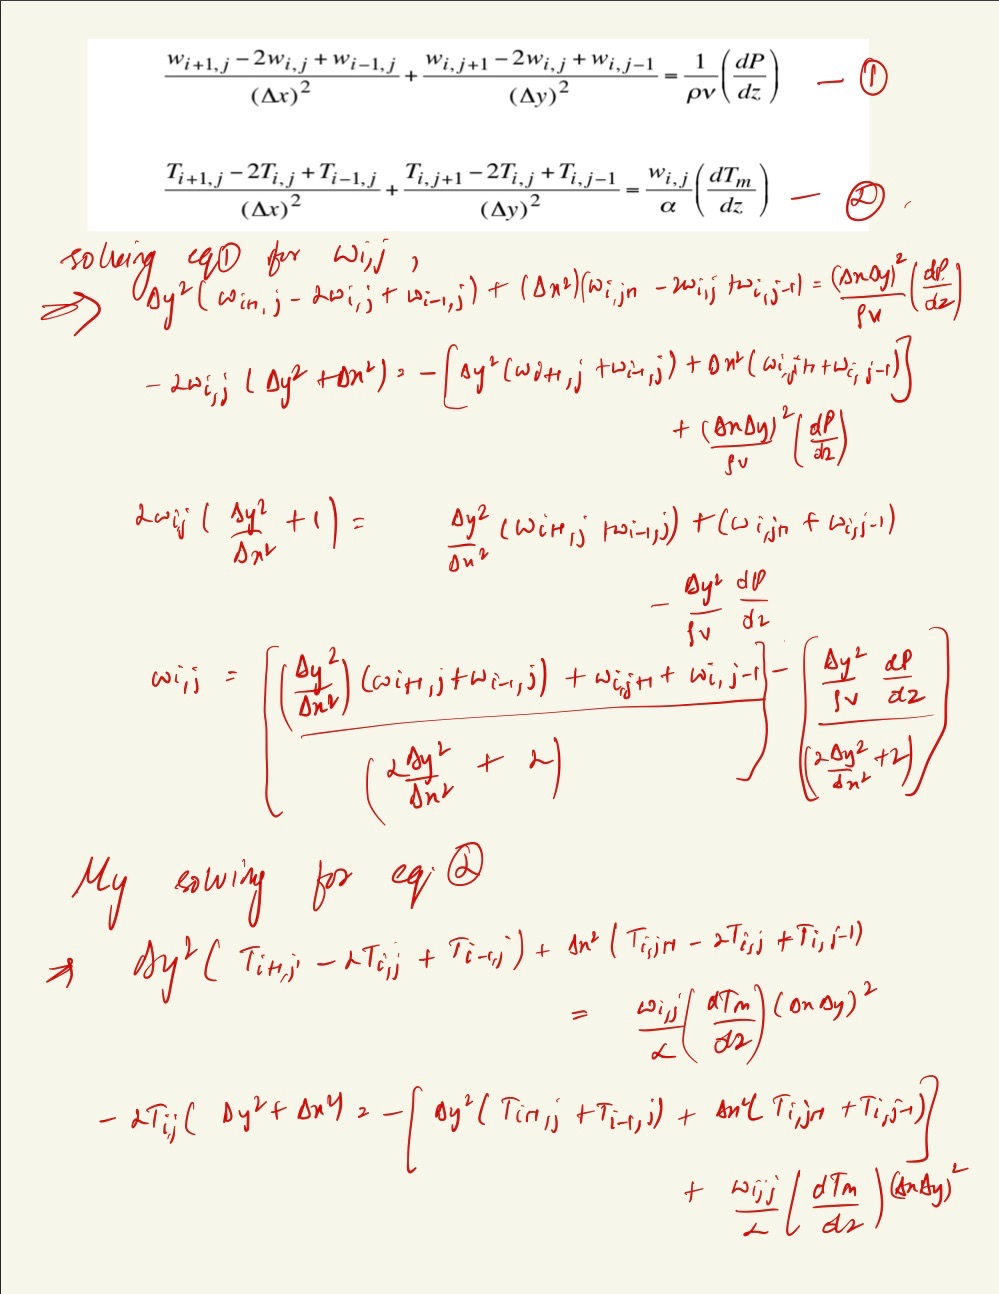 (w_{i+1,j} − 2w_{i,j} + w_{i−1,j})/(Δx)² + (w_{i,j+1} − 2w_{i,j} + w_{i,j−1})/(Δy)² = 1/(ρν) (dP/dz) — ①
(T_{i+1,j} − 2T_{i,j} + T_{i−1,j})/(Δx)² + (T_{i,j+1} − 2T_{i,j} + T_{i,j−1})/(Δy)² = w_{i,j}/α (dT_m/dz) — ②
solving eq① for wi,j,
⇒ Δy² (wi+1,j − 2wi,j + wi−1,j) + (Δx²)(wi,j+1 − 2wi,j + wi,j−1) = (ΔxΔy)²/ρν (dP/dz)
− 2wi,j (Δy² + Δx²) = − [Δy² (wi+1,j + wi−1,j) + Δx² (wi,j+1 + wi,j−1)]
+ (ΔxΔy)²/ρν (dP/dz)
2wij (Δy²/Δx² + 1) = Δy²/Δx² (wi+1,j + wi−1,j) + (wi,j+1 + wi,j−1)
− Δy²/ρν dP/dz
wi,j = [(Δy²/Δx²) (wi+1,j + wi−1,j) + wi,j+1 + wi,j−1 / (2Δy²/Δx² + 2)] − [Δy²/ρν dP/dz / (2Δy²/Δx² + 2)]
My solving for eq. ②
⇒ Δy² (Ti+1,j − 2Ti,j + Ti−1,j) + Δx² (Ti,j+1 − 2Ti,j + Ti,j−1)
= wi,j/α (dTm/dz) (ΔxΔy)²
− 2Ti,j (Δy² + Δx²) = − [Δy² (Ti+1,j + Ti−1,j) + Δx² (Ti,j+1 + Ti,j−1)]
+ wi,j/α (dTm/dz) (ΔxΔy)²